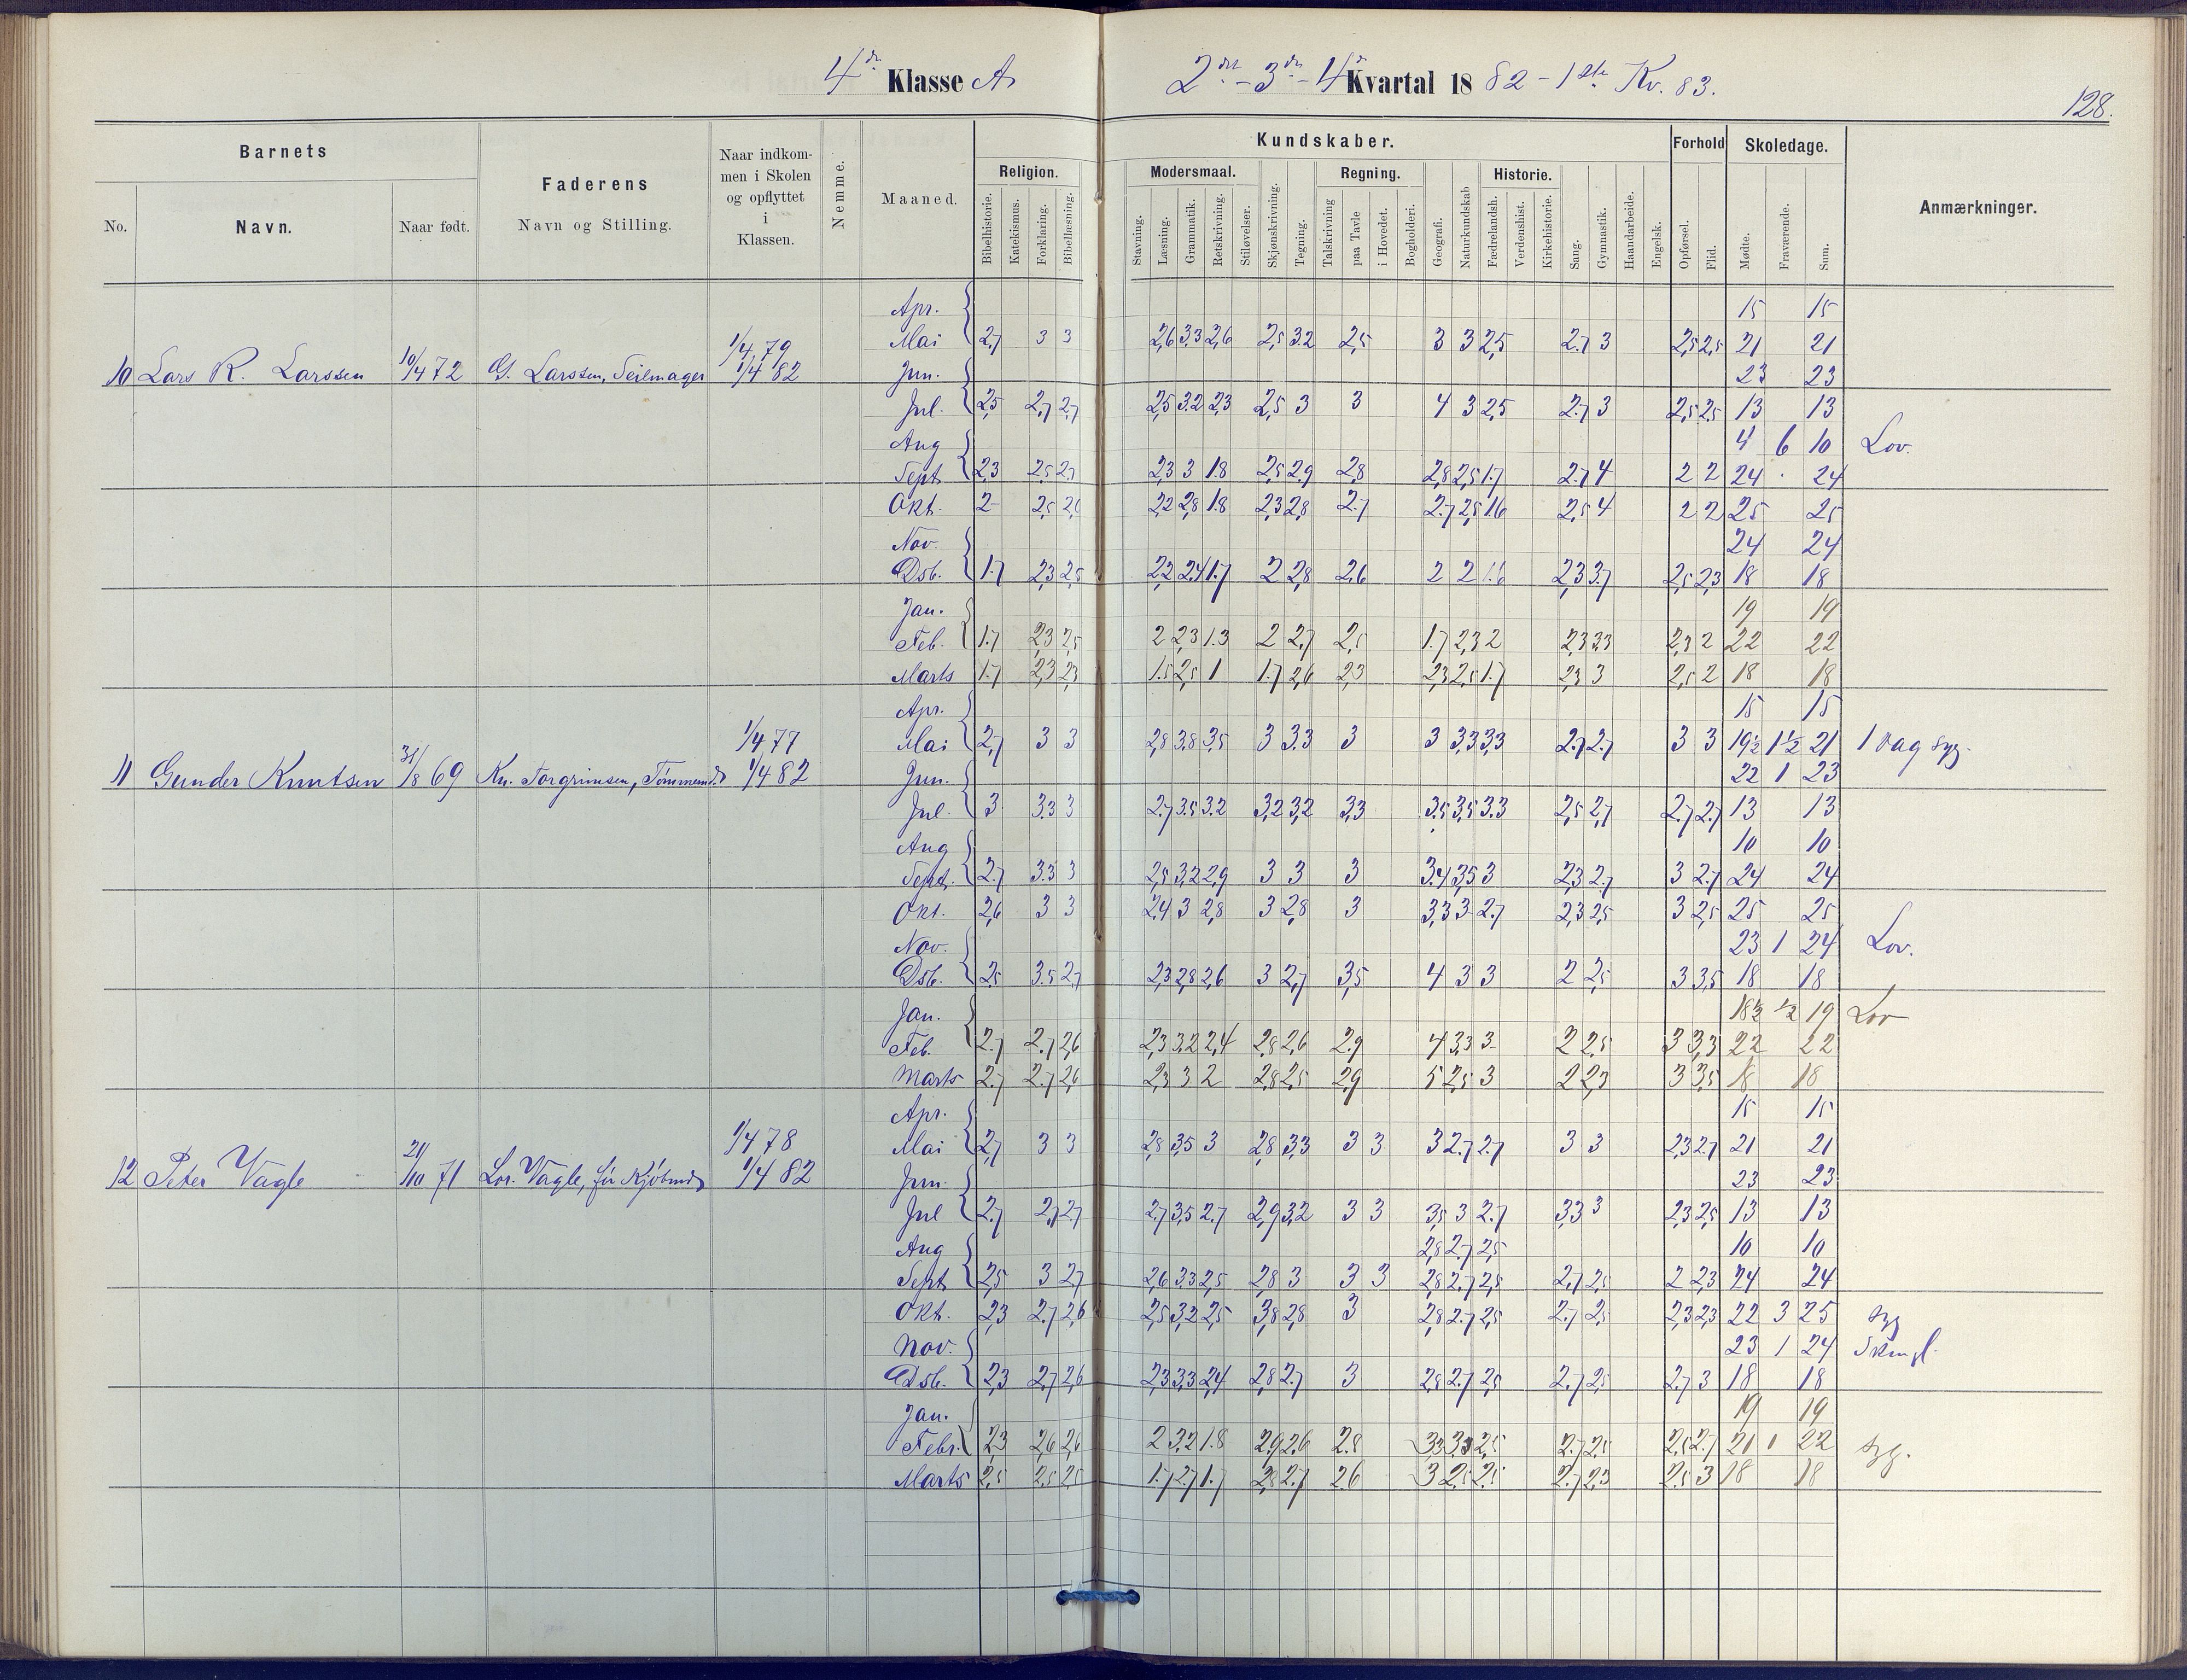 4de Klasse A. 2det - 3de - 4de Kvartal 1882 - 1ste Kv. 83.
128.
Barnets
Faderens
Navn og Stilling.
Naar indkom-
men i Skolen
og opflyttet
i
Klassen.
Nemme.
Maaned.
Kundskaber.
Forhold
Skoledage.
Anmærkninger.
No. Navn. Naar født.
Religion. Modersmaal. Regning. Historie.
Bibelhistorie. Katekismus. Forklaring. Bibellæsning. Stavning. Læsning. Grammatik. Retskrivning. Stiløvelser. Skjønskrivning. Tegning. Talskrivning paa Tavle i Hovedet. Bogholderi. Geografi. Naturkundskab Fædrelandsh. Verdenshist. Kirkehistorie. Sang. Gymnastik. Haandarbeide. Engelsk. Opførsel. Flid. Mødte. Fraværende. Sum.
Apr. 15 15
1/4 79
Mai 2,7 3 3 2,6 3,3 2,6 2,5 3.2 2,5 3 3 2,5 2.7 3 2,5 2,5 21 21
10 Lars R. Larssen 10/4 72 G. Larssen, Seilmager 1/4 82 Jun. 23 23
Jul. 2,5 2,7 2,7 2,5 3.2 2,3 2,5 3 3 4 3 2,5 2.7 3 2,5 2,5 13 13
Aug 4 6 10 Lov.
Sept. 2,3 2,5 2,7 2,3 3 1.8 2,5 2,9 2,8 2,8 2,5 1.7 2.7 4 2 2 24 24
Okt. 2 2,5 2,6 2,2 2,8 1.8 2,3 2,8 2.7 2.7 2,5 1.6 2,5 4 2 2 25 25
Nov. 24 24
Dsb. 1.7 2,3 2,5 2,2 2,4 1.7 2 2,8 2,6 2 2 1.6 2,3 3.7 2,5 2,3 18 18
Jan. 19 19
Feb. 1.7 2,3 2,5 2 2,3 1.3 2 2,7 2,5 1.7 2,3 2 2,3 3,3 2,3 2 22 22
Marts 1.7 2,3 2,3 1.5 2,5 1 1.7 2,6 2,3 2,3 2,5 1.7 2,3 3 2,5 2 18 18
Apr. 15 15
1/4 77
Mai 2,7 3 3 2,8 3,8 3,5 3 3.3 3 3 3,3 3,3 2,7 2.7 3 3 19½ 1½ 21 1 dag syg.
11 Gunder Knutsen 31/8 69 Kn. Torgrimsen, Tømmerm. 1/4 82 Jun. 22 1 23
Jul. 3 3.3 3 2.7 3.5 3.2 3,2 3,2 3,3 3.5 3,5 3.3 2,5 2,7 2.7 2.7 13 13
Aug 10 10
Sept. 2.7 3.3 3 2,5 3,2 2,9 3 3 3 3.4 3,5 3 2,3 2.7 3 2.7 24 24
Okt. 2,6 3 3 2,4 3 2,8 3 2,8 3 3,3 3 2.7 2,3 2,5 3 2,5 25 25
Nov. 23 1 24 Lov.
Dsb. 2,5 3.5 2.7 2,3 2,8 2,6 3 2,7 3,5 4 3 3 2 2,5 3 3,5 18 18
Jan. 18½ ½ 19 Lov
Feb. 2.7 2.7 2,6 2,3 3,2 2,4 2,8 2,6 2.9 4 3,3 3 2 2,5 3 3,3 22 22
Marts 2.7 2.7 2,6 2,3 3 2 2,8 2,5 2,9 5 2,5 3 2 2,3 3 3,5 18 18
Apr. 15 15
1/4 78
Mai 2,7 3 3 2,8 3,5 3 2,8 3,3 3 3 3 2.7 2.7 3 3 2,3 2.7 21 21
12 Peter Vagle 21/10 71 Lor. Vagle, før Kjøbmd 1/4 82 Jun. 23 23
Jul 2.7 2,7 2,7 2,7 3,5 2.7 2,9 3,2 3 3 3,5 3 2.7 3,3 3 2,3 2,5 13 13
Aug 2,8 2.7 2,5 10 10
Sept 2,5 3 2,7 2,6 3,3 2,5 2,8 3 3 3 2,8 2.7 2,5 2.7 2,5 2 2,3 24 24
Okt. 2,3 2.7 2,6 2,5 3,2 2,5 3,8 2,8 3 2,8 2.7 2,5 2.7 2,5 2,3 2,3 22 3 25 syg
Nov. 23 1 24
Dsb. 2,3 2,7 2,6 2,3 3,3 2,4 2,8 2.7 3 2,8 2.7 2,5 2.7 2,5 2.7 3 18 18
Jan. 19 19
Febr. 2,3 2,6 2,6 2 3,2 1.8 2,9 2,6 2.8 3,3 3,3 2,5 2.7 2,5 2,5 2.7 21 1 22 syg.
Marts 2,5 2,5 2,5 1.7 2,7 1.7 2,8 2.7 2.6 3 2,5 2,5 2.7 2,3 2.5 3 18 18